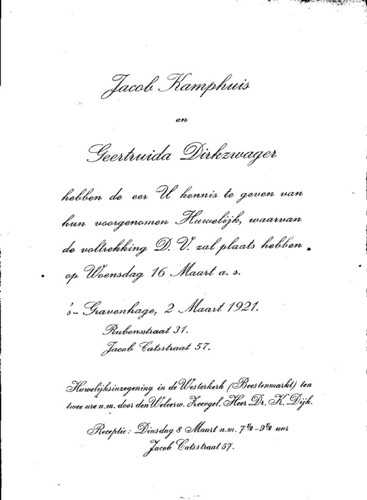 Jacob Kamphuis
en
Geertruida Dirkzwager
hebben de eer U kennis te geven van
hun voorgenomen Huwelijk, waarvan
de voltrekking D. V. zal plaats hebben
op Woensdag 16 Maart a. s.
's-Gravenhage, 2 Maart 1921.
Rubensstraat 31.
Jacob Catsstraat 57.
Huwelijksinzegening in de Westerkerk (Beestenmarkt) ten
twee ure n.m. door den Weleerw. Zeergel. Heer Dr. K. Dijk.
Receptie: Dinsdag 8 Maart n.m. 7½-9½ uur
Jacob Catsstraat 57.